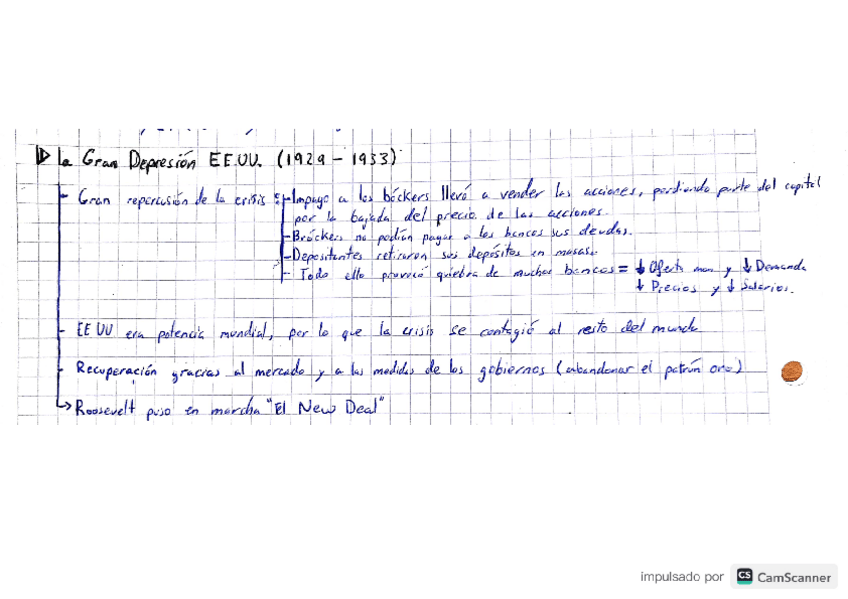 La Gran Depresión EE.UU. (1929 - 1933)
- Gran repercusión de la crisis :
- Impago a los bóckers llevó a vender las acciones, perdiendo parte del capital
por la bajada del precio de las acciones.
- Bróckers no podían pagar a los bancos sus deudas.
- Depositantes retiraron sus depósitos en masas.
- Todo ello provocó quiebra de muchos bancos = ↓ Oferta mon y ↓ Demanda
↓ Precios y ↓ Salarios.
- EE UU era potencia mundial, por lo que la crisis se contagió al resto del mundo
- Recuperación gracias al mercado y a las medidas de los gobiernos (abandonar el patrón oro)
→ Roosevelt puso en marcha "El New Deal"
impulsado por CS CamScanner